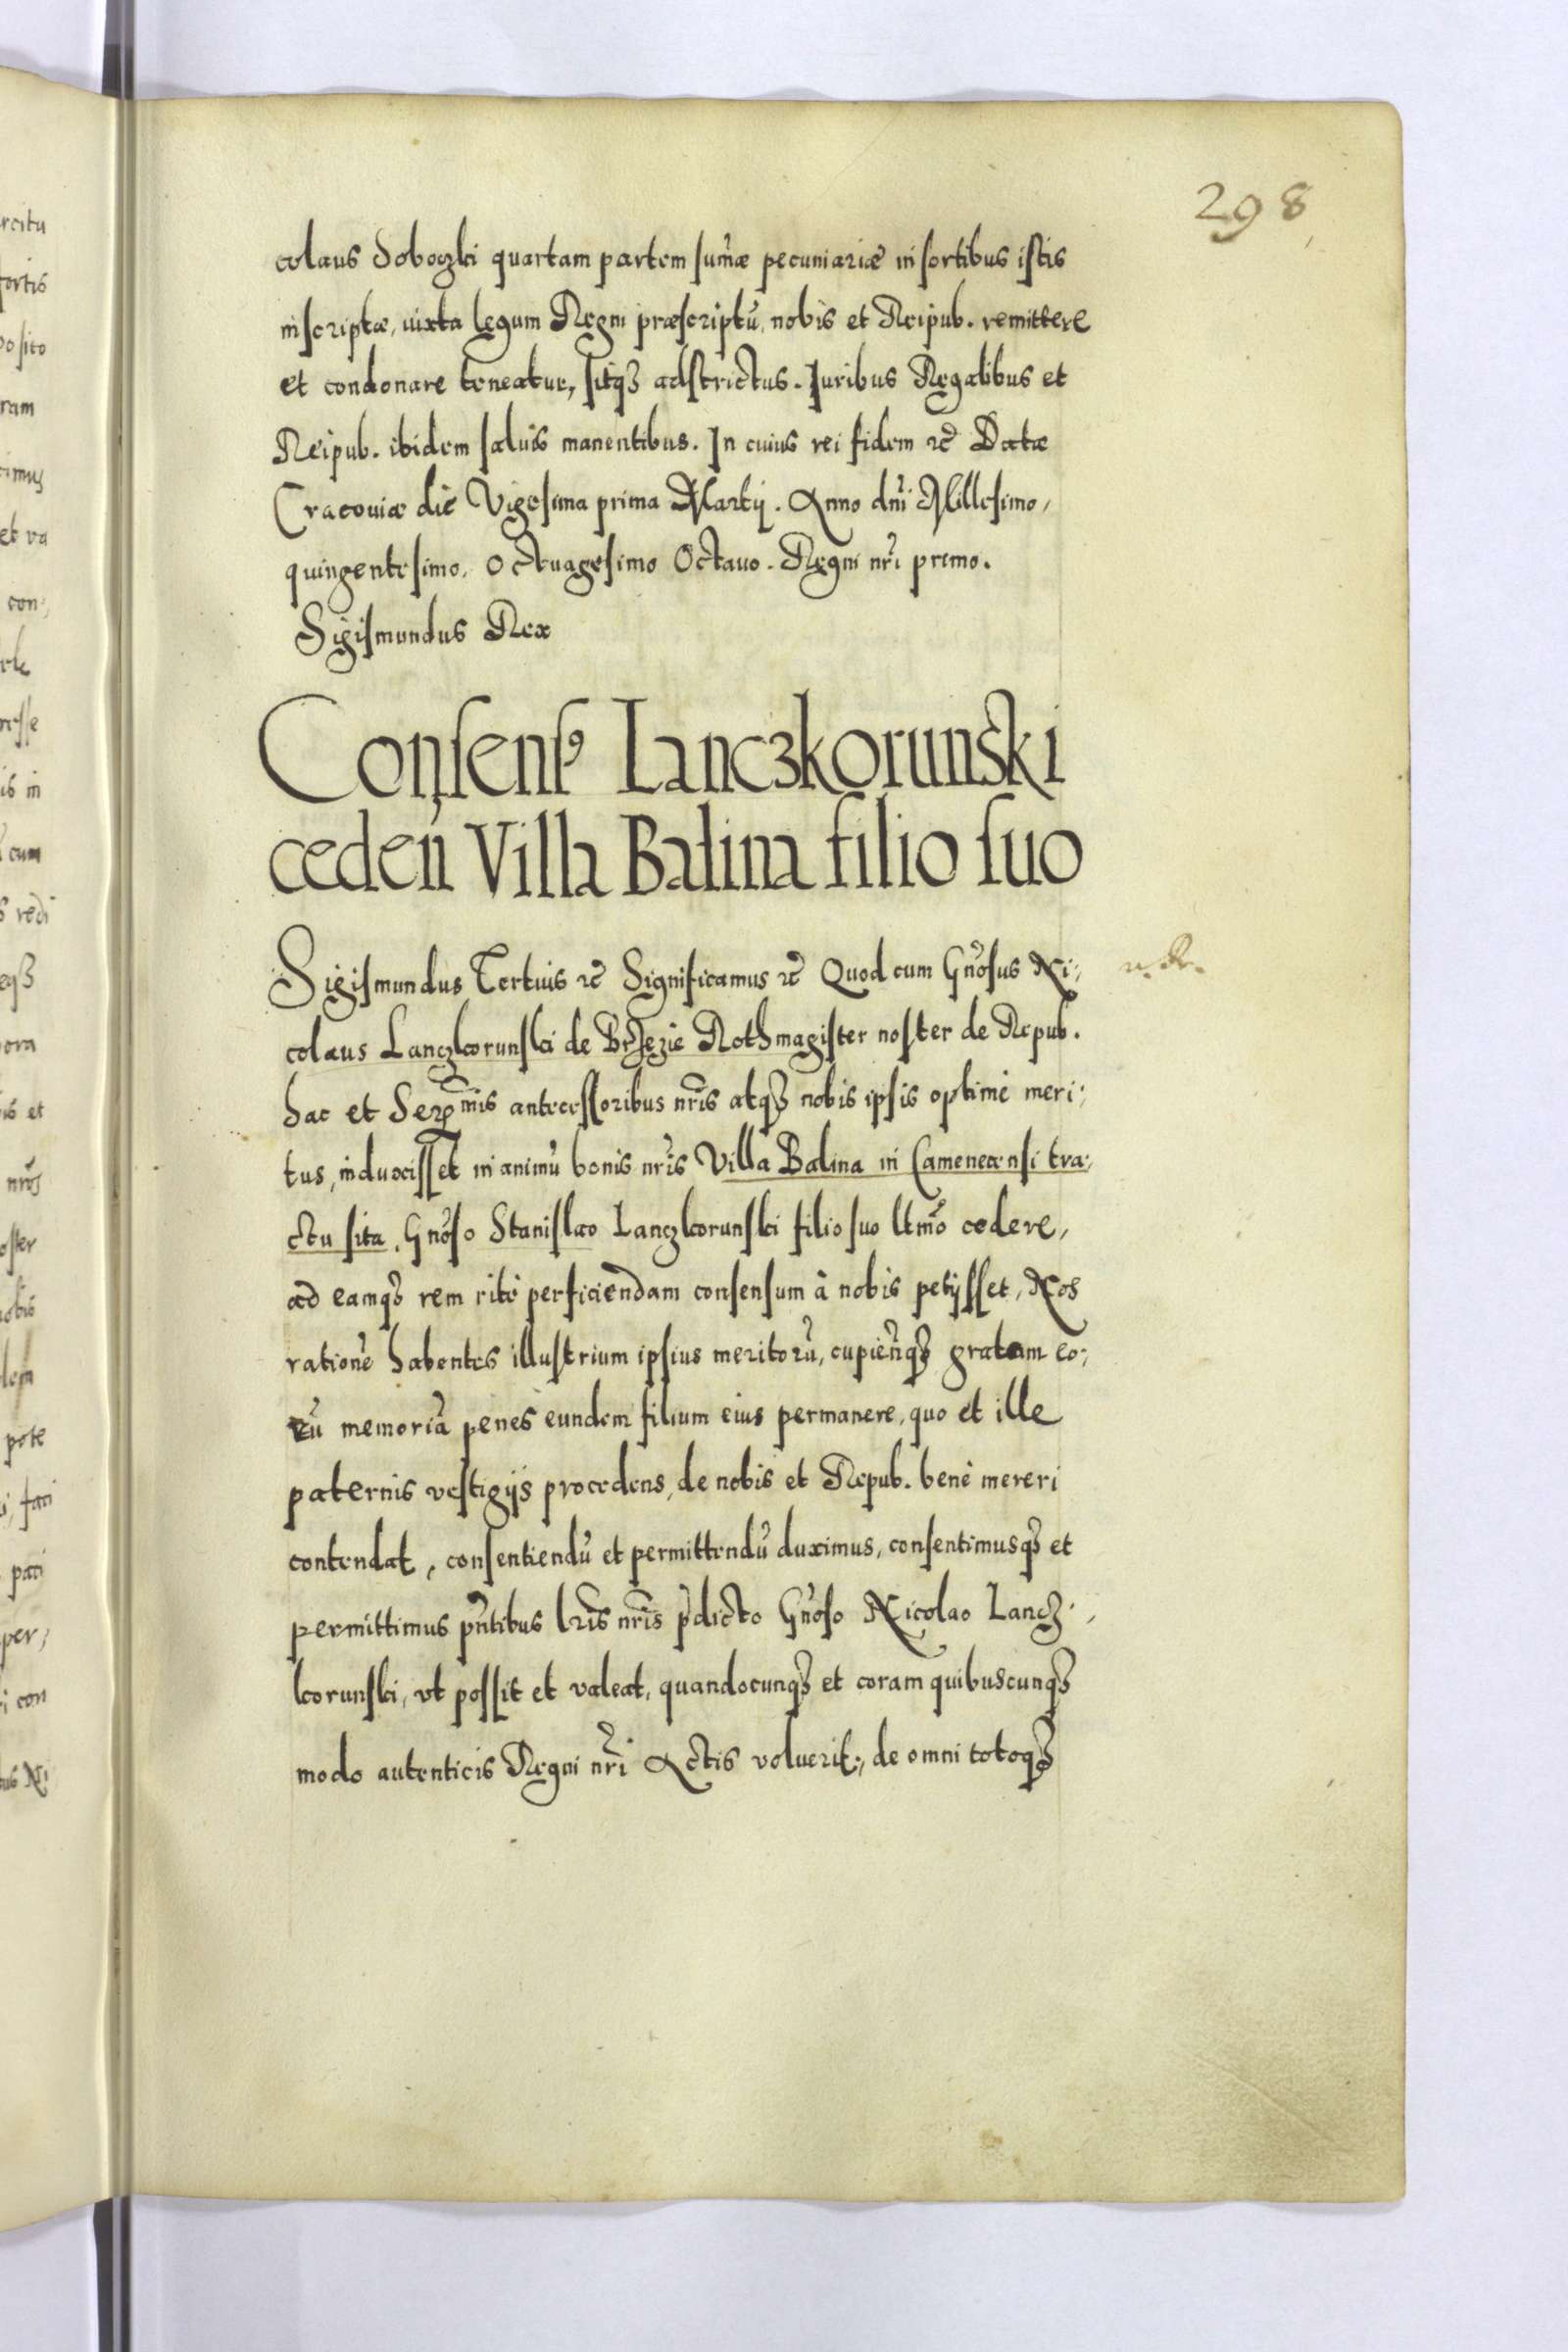 298
colaus Soboczki quartam partem sum̃æ pecuniariæ in sortibus istis
inscriptæ, iuxta legum Regni præscriptũ, nobis et Reipub. remittere
et condonare teneatur, sitqꝫ adstrictus. Iuribus Regalibus et
Reipub. ibidem saluis manentibus. In cuius rei fidem ꝛc̃ Datæ
Cracouiæ die Vigesima prima Martij. Anno dñi Millesimo,
quingentesimo, Octuagesimo Octauo. Regni nr̃i primo.
Sigismundus Rex
Consensꝰ Lanczkorunski
cedeñ Villa Balina filio suo
Sigismundus Tertius ꝛc̃ Significamus ꝛc̃ Quod cum Gñosus Ni,
colaus Lanczkorunski de Brzezie Rothmagister noster de Repub.
hac et Serenmis antecessoribus nr̃is atqꝫ nobis ipsis optimè meri,
tus, induxisset in animũ bonis nr̃is Villa Balina in Camenecensi tra,
ctu sita, Gñoso Stanislao Lanczkorunski filio suo ltm̃o cedere,
ad eamqꝫ rem ritè perficiendam consensum à nobis petijsset, Nos
rationẽ habentes illustrium ipsius meritorũ, cupieñqꝫ gratam eo,
rũ memoriã penes eundem filium eius permanere, quo et ille
paternis vestigijs procedens, de nobis et Repub. benè mereri
contendat, consentiendũ et permittendũ duximus, consentimusqꝫ et
permittimus pñtibus lr̃is nr̃is p̃dicto Gñoso Nicolao Lancz,
korunski, vt possit et valeat, quandocunqꝫ et coram quibuscunqꝫ
modo autenticis Regni nr̃i Actis voluerit, de omni totoqꝫ